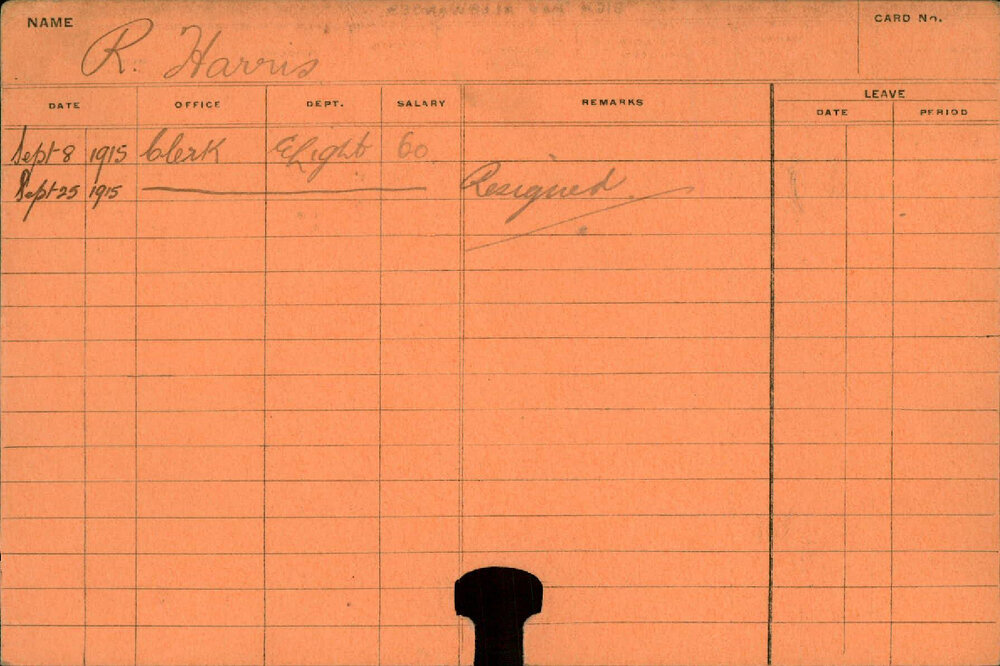 NAME
R. Harris
CARD No.
DATE OFFICE DEPT. SALARY REMARKS LEAVE
DATE PERIOD
Sept 8 1915 Clerk ELight 60.
Sept 25 1915 Resigned